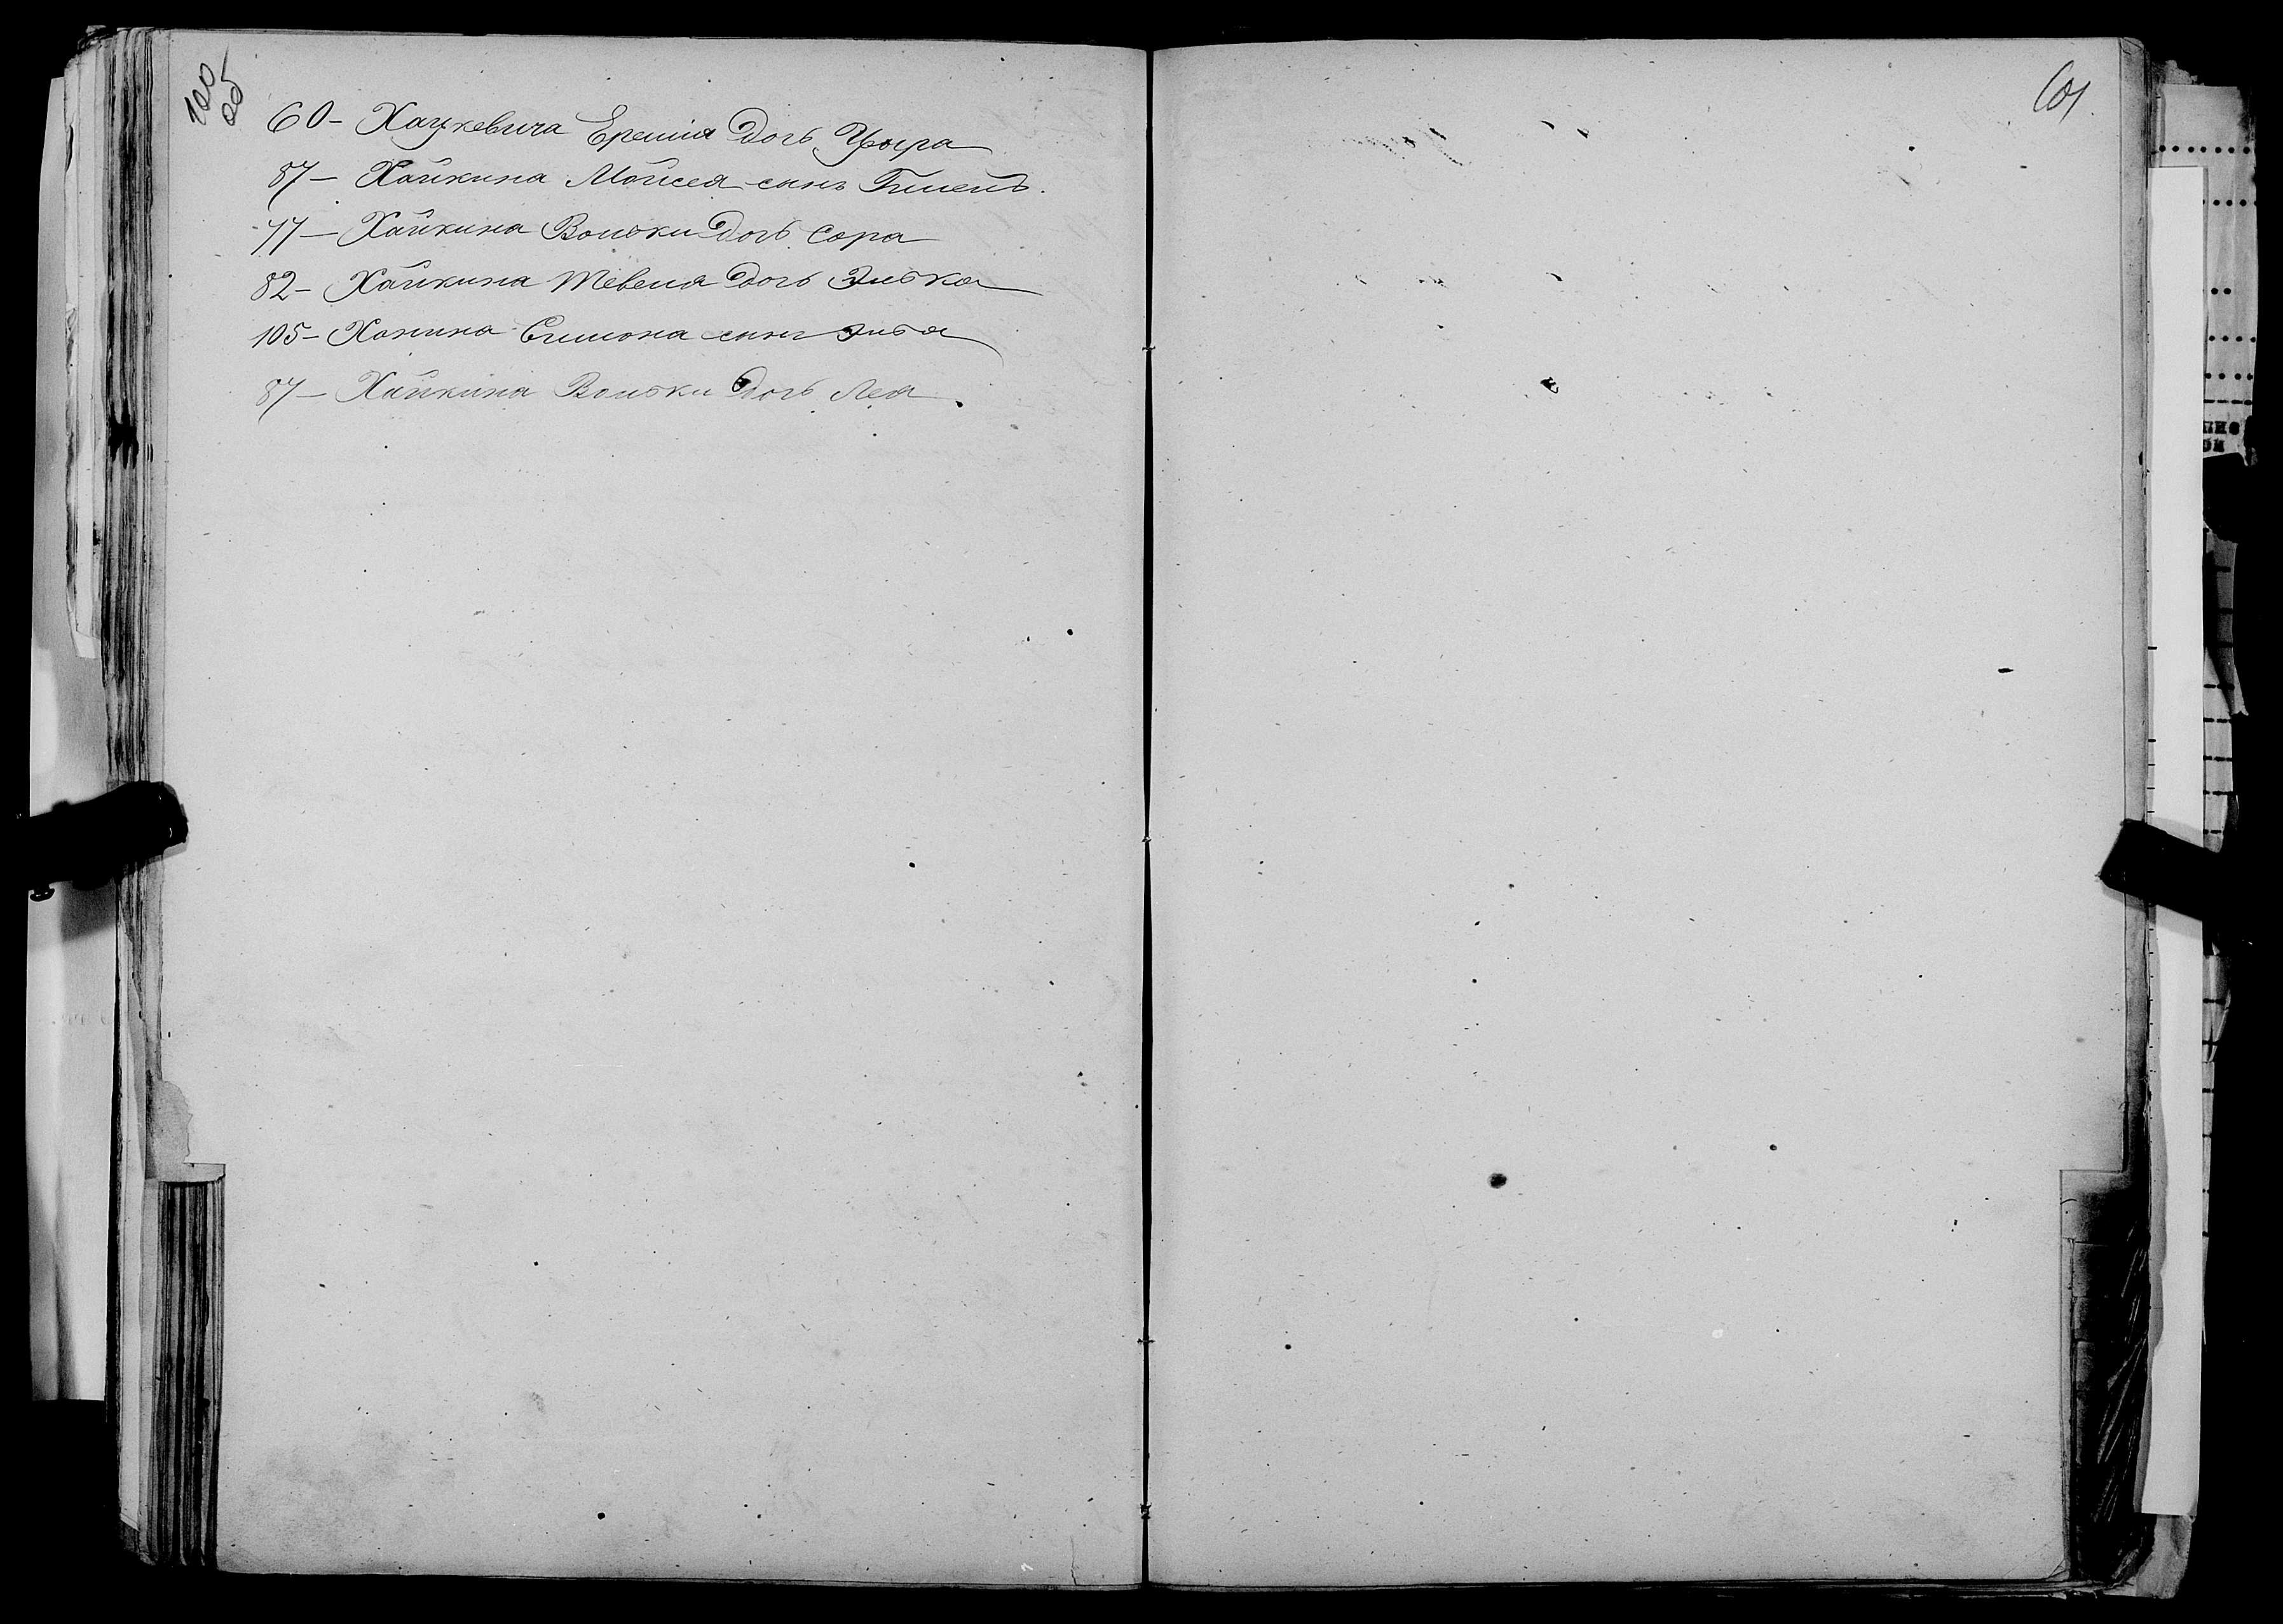 100
об
60 - Хацкевича Еремія Дочь Цыра
87 - Хайкина Мойсея сынъ
77 - Хайкина Вольки Дочь Сора
82 - Хайкина Тевеля Дочь Элька
105 - Хонина Симона сынъ Элья
87 - Хайкина Вольки Дочь Лея
101.